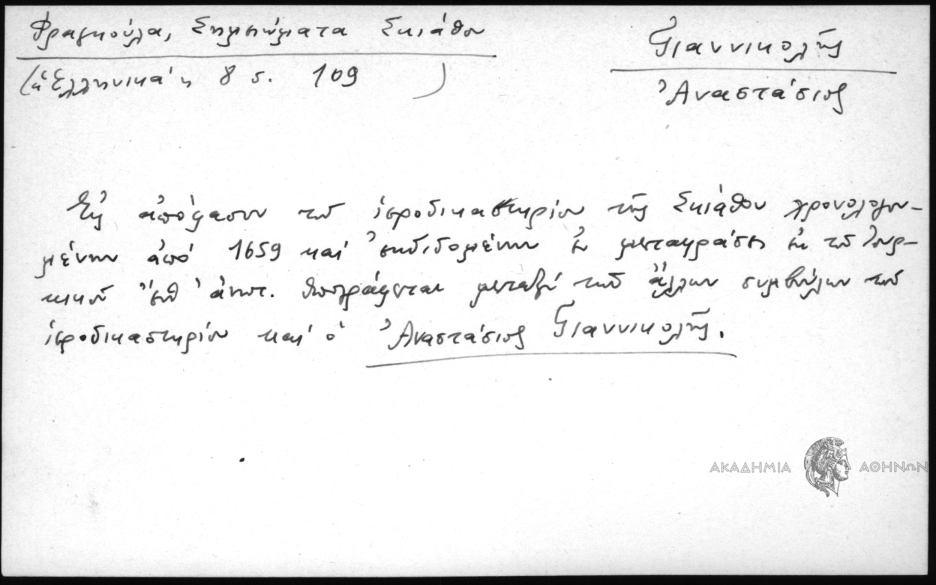 Φραγκούλα, Σημειώματα Σκιάθου
("Ελληνικά" 8 σ. 109)
Γιαννικολῆς
Ἀναστάσιος
Εἰς ἀπόφασιν τοῦ ἱεροδικαστηρίου τῆς Σκιάθου χρονολογου-
μένην ἀπό 1659 καί ἐκδιδομένην ἐν μεταφράσει ἐκ τοῦ Τουρ-
κικοῦ ὑπογράφεται μεταξύ τῶν ἄλλων συμβούλων τοῦ
ἱεροδικαστηρίου καί ὁ Ἀναστάσιος Γιαννικολῆς.
ΑΚΑΔΗΜΙΑ ΑΘΗΝΩΝ